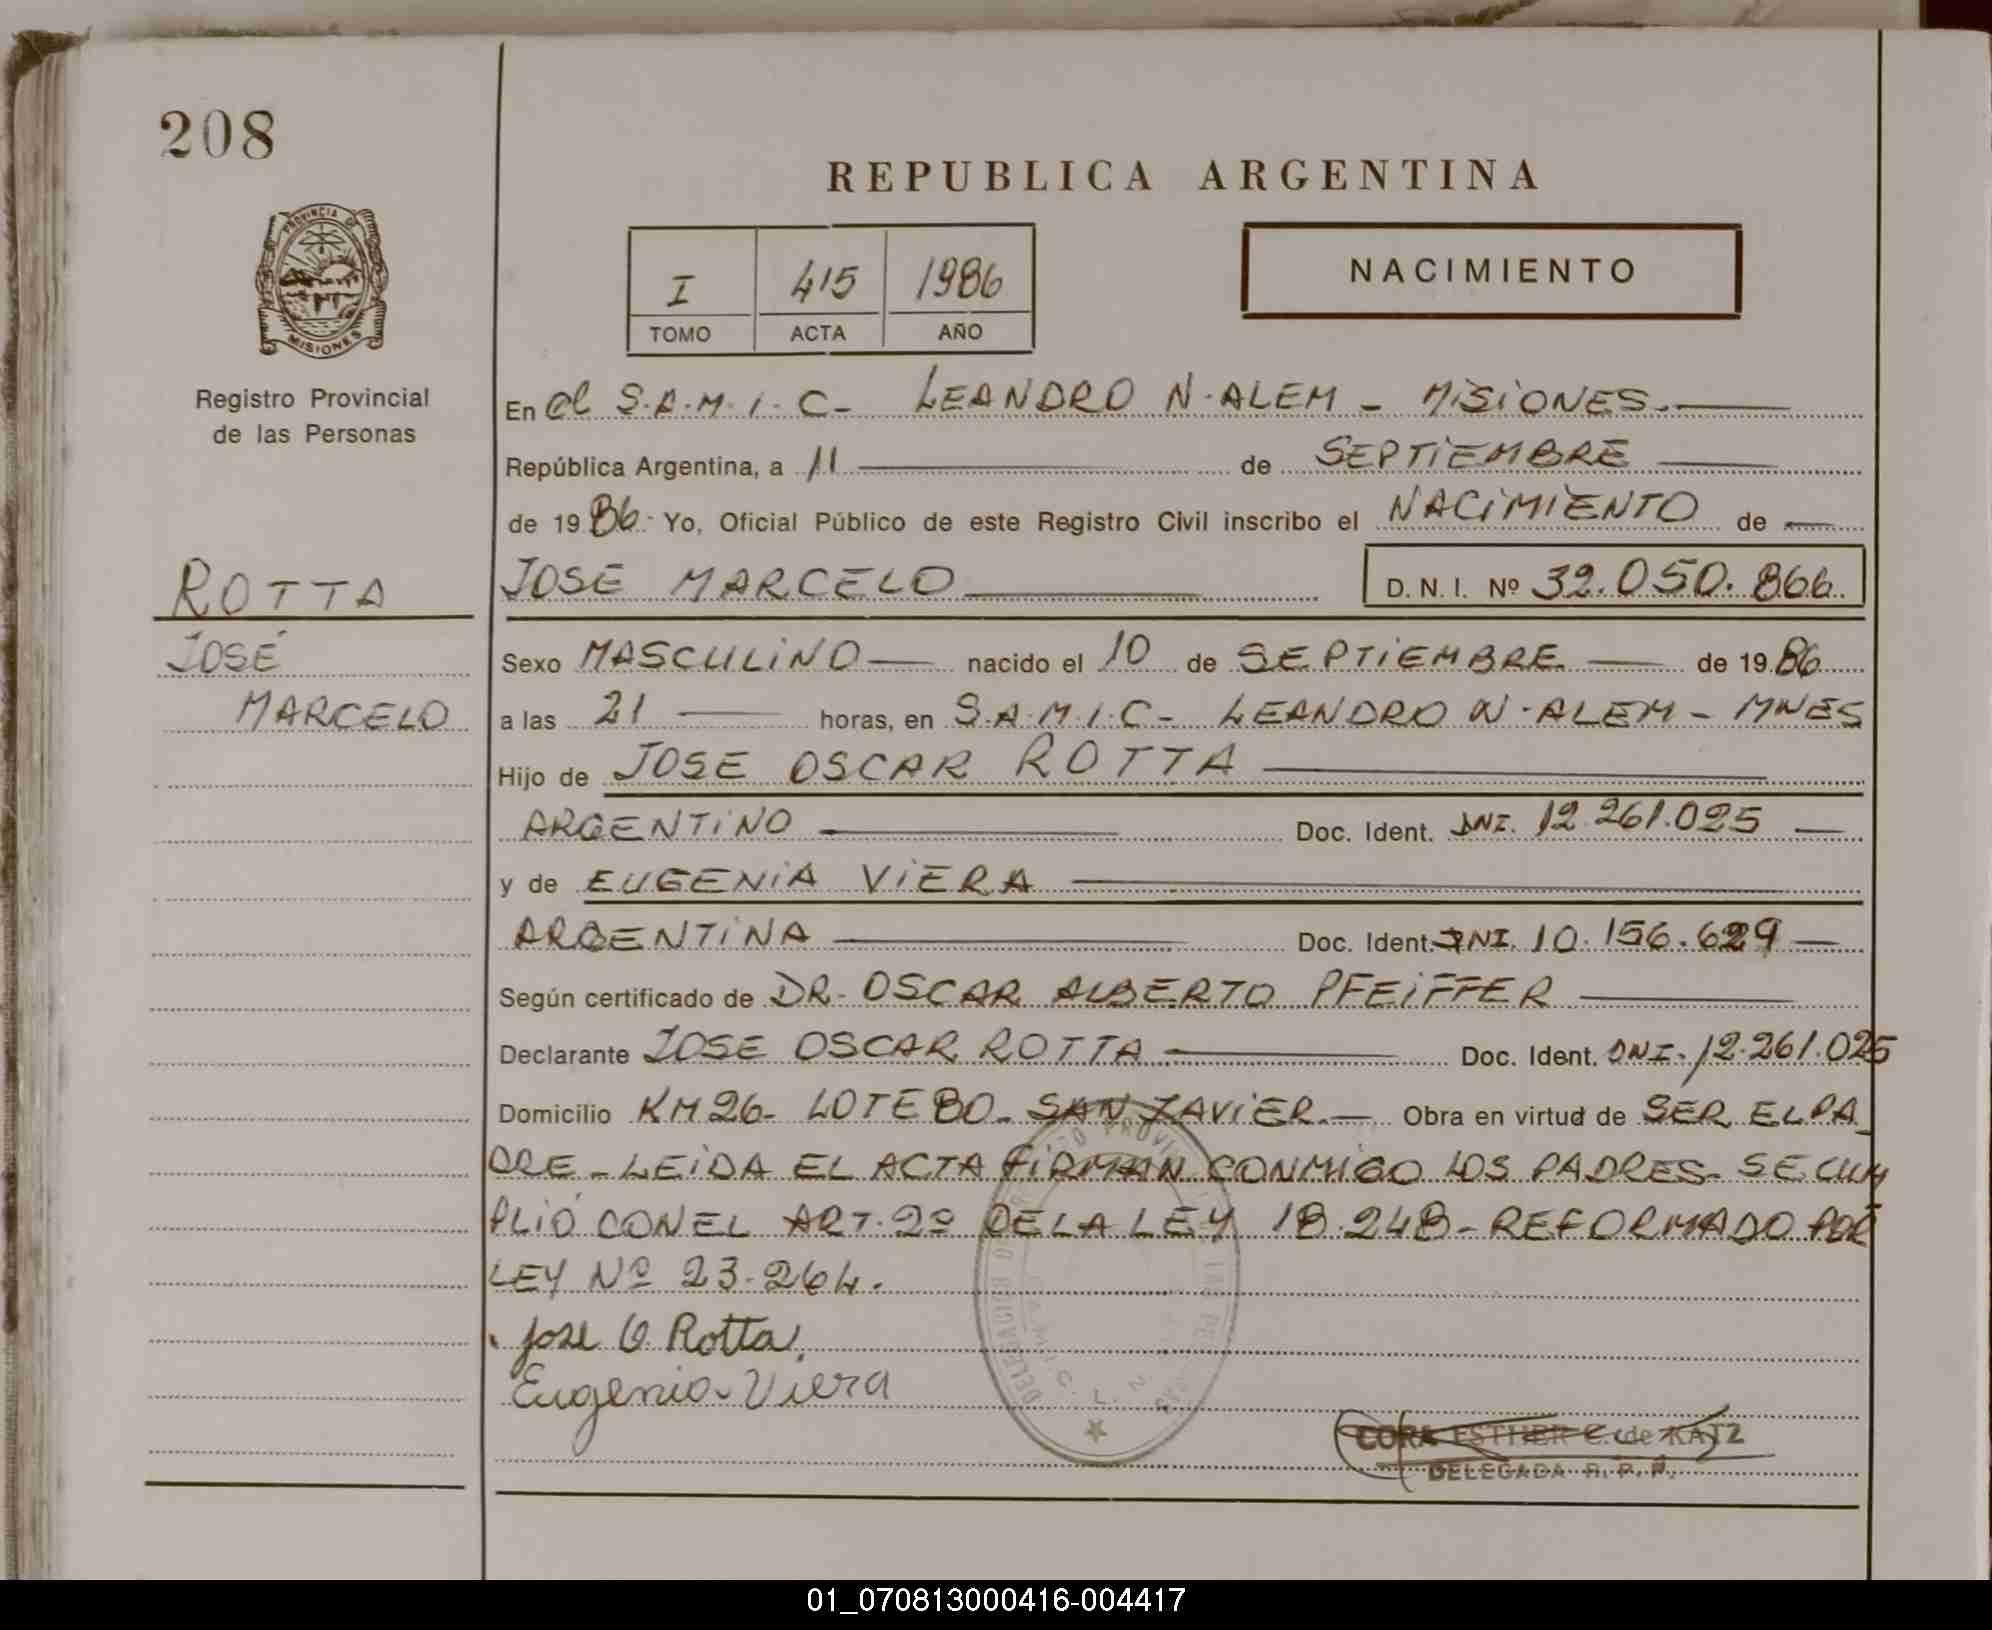 208
REPUBLICA ARGENTINA
PROVINCIA DE
MISIONES
I 415 1986
TOMO ACTA AÑO
NACIMIENTO
Registro Provincial
de las Personas
En el S.A.M.I.C- LEANDRO N.ALEM - MISIONES.
República Argentina, a 11 de SEPTIEMBRE
de 1986.- Yo, Oficial Público de este Registro Civil inscribo el NACIMIENTO de
ROTTA
JOSE MARCELO D. N. I. Nº 32.050.866.
JOSÉ
MARCELO
Sexo MASCULINO nacido el 10 de SEPTIEMBRE de 1986
a las 21 horas, en S.A.M.I.C- LEANDRO N.ALEM - MNES
Hijo de JOSE OSCAR ROTTA
ARGENTINO Doc. Ident. DNI. 12.261.025
y de EUGENIA VIERA
ARGENTINA Doc. Ident. DNI. 10.156.629
Según certificado de DR. OSCAR ALBERTO PFEIFFER
Declarante JOSE OSCAR ROTTA Doc. Ident. DNI. 12.261.025
Domicilio KM26- LOTE80- SAN JAVIER. Obra en virtud de SER EL PA_
DRE - LEIDA EL ACTA FIRMAN CONMIGO LOS PADRES- SE CUM
PLIÓ CON EL ART. 2º DE LA LEY 18.248 - REFORMADO POR
LEY Nº 23.264.
Jose O. Rotta
Eugenia Viera
CORA ESTHER C. de KATZ
DELEGADA R. P. P.
01_070813000416-004417